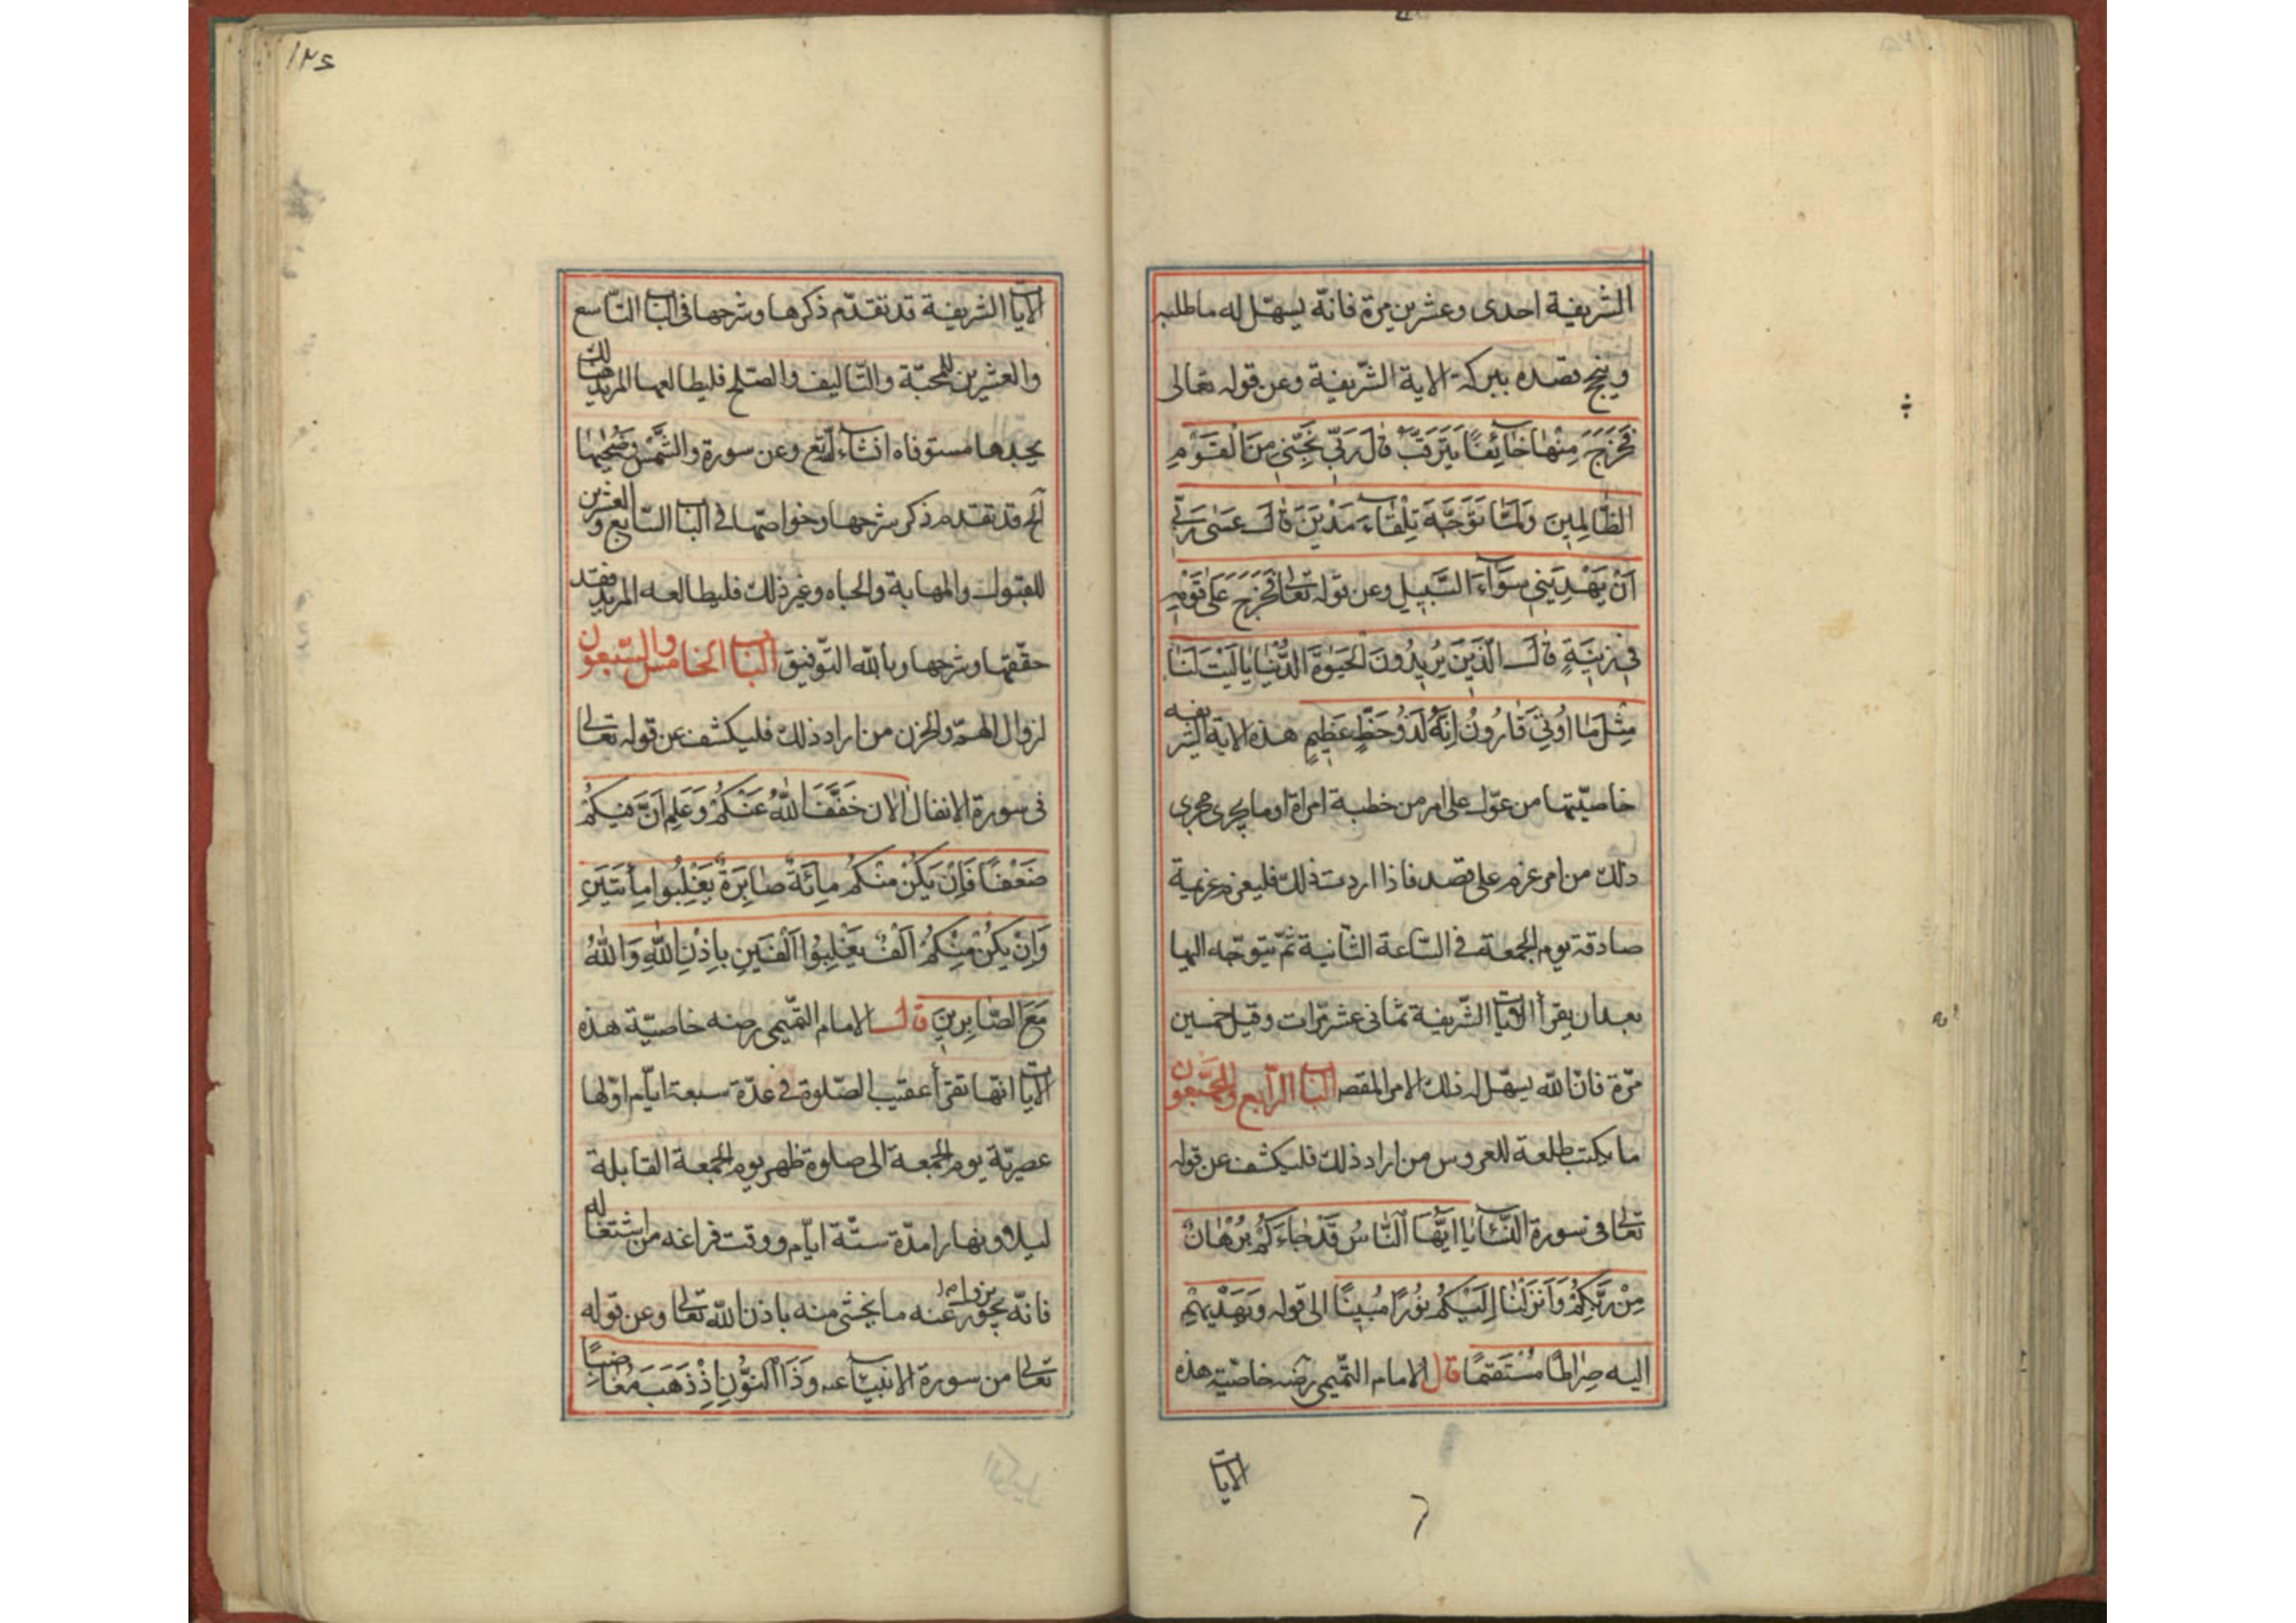 الشريفة احدى وعشرين مرة فانّه يسهّل له ما طلبه
وينجح قصده ببركة الاية الشّريفة وعن قوله تعالى
فَخَرَجَ مِنْهَا خَائِفًا يَتَرَقَّبُ قَالَ رَبِّ نَجِّنِي مِنَ الْقَوْمِ
الظَّالِمِينَ وَلَمَّا تَوَجَّهَ تِلْقَاءَ مَدْيَنَ قَالَ عَسَى رَبِّي
اَنْ يَهْدِيَنِي سَوَاءَ السَّبِيلِ وعن قوله تعالى فَخَرَجَ عَلَى قَوْمِهِ
فِي زِينَتِهِ قَالَ الَّذِينَ يُرِيدُونَ الْحَيَوةَ الدُّنْيَا يَا لَيْتَ لَنَا
مِثْلَ مَا اُوتِيَ قَارُونُ اِنَّهُ لَذُو حَظٍّ عَظِيمٍ هذه الاية الشريفه
خاصيّتها من عوّل على امر من خطبة امراة او ما يجرى مجرى
ذلك من امر عزم على قصد فاذا اردت ذلك فليعزم عزيمة
صادقة يوم الجمعة فى السّاعة الثّانية ثمّ يتوجّه اليها
بعد ان يقرأ الايات الشّريفة ثمانى عشر مّرات وقيل خمسين
مرّة فانّ الله يسهّل له ذلك الامر المقصد الباب الرّابع والسّبعون
ما يكتب طلعة للعروس من اراد ذلك فليكشف عن قوله
تعالى فى سورة النّساء يا اَيُّهَا النَّاسُ قَدْ جَاءَكُمْ بُرْهَانٌ
مِنْ رَبِّكُمْ وَاَنْزَلْنَا اِلَيْكُمْ نُورًا مُبِينًا الى قوله وَيَهْدِيهِمْ
اليه صِرَاطًا مُسْتَقِيمًا قال الامام التّميمى رضه خاصّية هذه
الايات
١٢٤
الايات الشريفة قد تقدّم ذكرها وشرحها فى الباب التّاسع
والعشرين للمحبّة والتّاليف والصّلح فليطالعها المريد لذلك هناك
يجدها مستوفاه انشاء لله تع وعن سورة والشَّمْسِ وَضُحٰيهَا
الخ قد تقدم ذكر شرحها وخواصّها فى الباب السّابع والعشرين
للقبول والمهابة والجاه وغير ذلك فليطالعه المريد فقد
حقّقتها وشرحها وبالله التّوفيق الباب الخامس والسّبعون
لزوال الهمّ والحزن من اراد ذلك فليكشف عن قوله تعالى
فى سورة الانفال اَلْاٰنَ خَفَّفَ اللهُ عَنْكُمْ وَعَلِمَ اَنَّ فِيكُمْ
ضَعْفًا فَاِنْ يَكُنْ مِنْكُمْ مِائَةٌ صَابِرَةٌ يَغْلِبُوا مِأَتَيْنِ
وَاِنْ يَكُنْ مِنْكُمْ اَلْفٌ يَغْلِبُوا اَلْفَيْنِ بِاِذْنِ اللهِ وَاللهُ
مَعَ الصَّابِرِينَ قال الامام التّميمى رضه خاصيّة هذه
الايات انّها تقرأ عقيب الصّلوة فى عدّة سبعة ايّام اوّلها
عصريّة يوم الجمعة الى صلوة ظهر يوم الجمعة القابلة
ليلا ونهارا مدّة ستّة ايّام ووقت فراغه من اشتغاله
فانّه عنه ما يخشى منه باذن الله تعالى وعن قوله
تعالى من سورة الانبياء عه وَذَا النُّونِ اِذْ ذَهَبَ مُغَاضِبًا